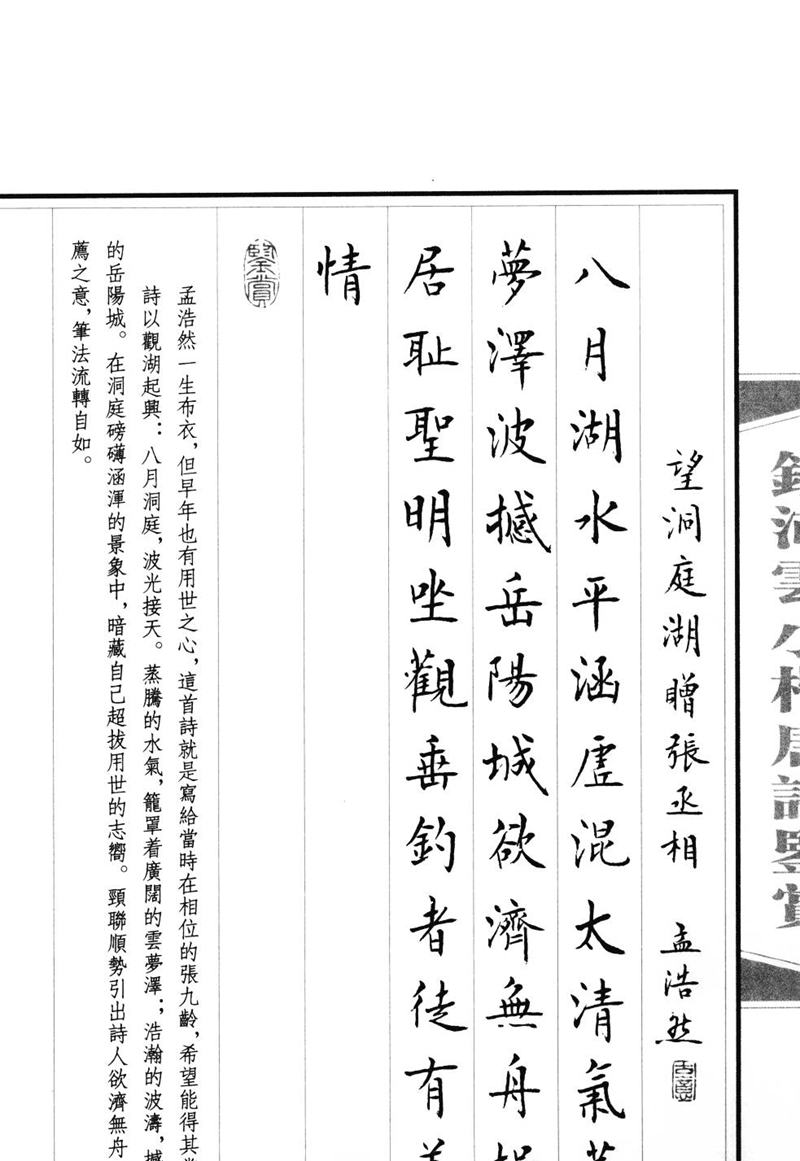 望洞庭湖贈張丞相 孟浩然
八月湖水平涵虛混太清氣蒸
夢澤波撼岳陽城欲濟無舟
居耻聖明坐觀垂釣者徒有
情
鑒賞
孟浩然一生布衣，但早年也有用世之心，這首詩就是寫給當時在相位的張九齡，希望能得其
詩以觀湖起興：八月洞庭，波光接天。蒸騰的水氣，籠罩着廣闊的雲夢澤；浩瀚的波濤，撼
的岳陽城。在洞庭磅礴涵渾的景象中，暗藏自己超拔用世的志嚮。頸聯順勢引出詩人欲濟無舟
薦之意，筆法流轉自如。
雲小楷唐詩鑒賞